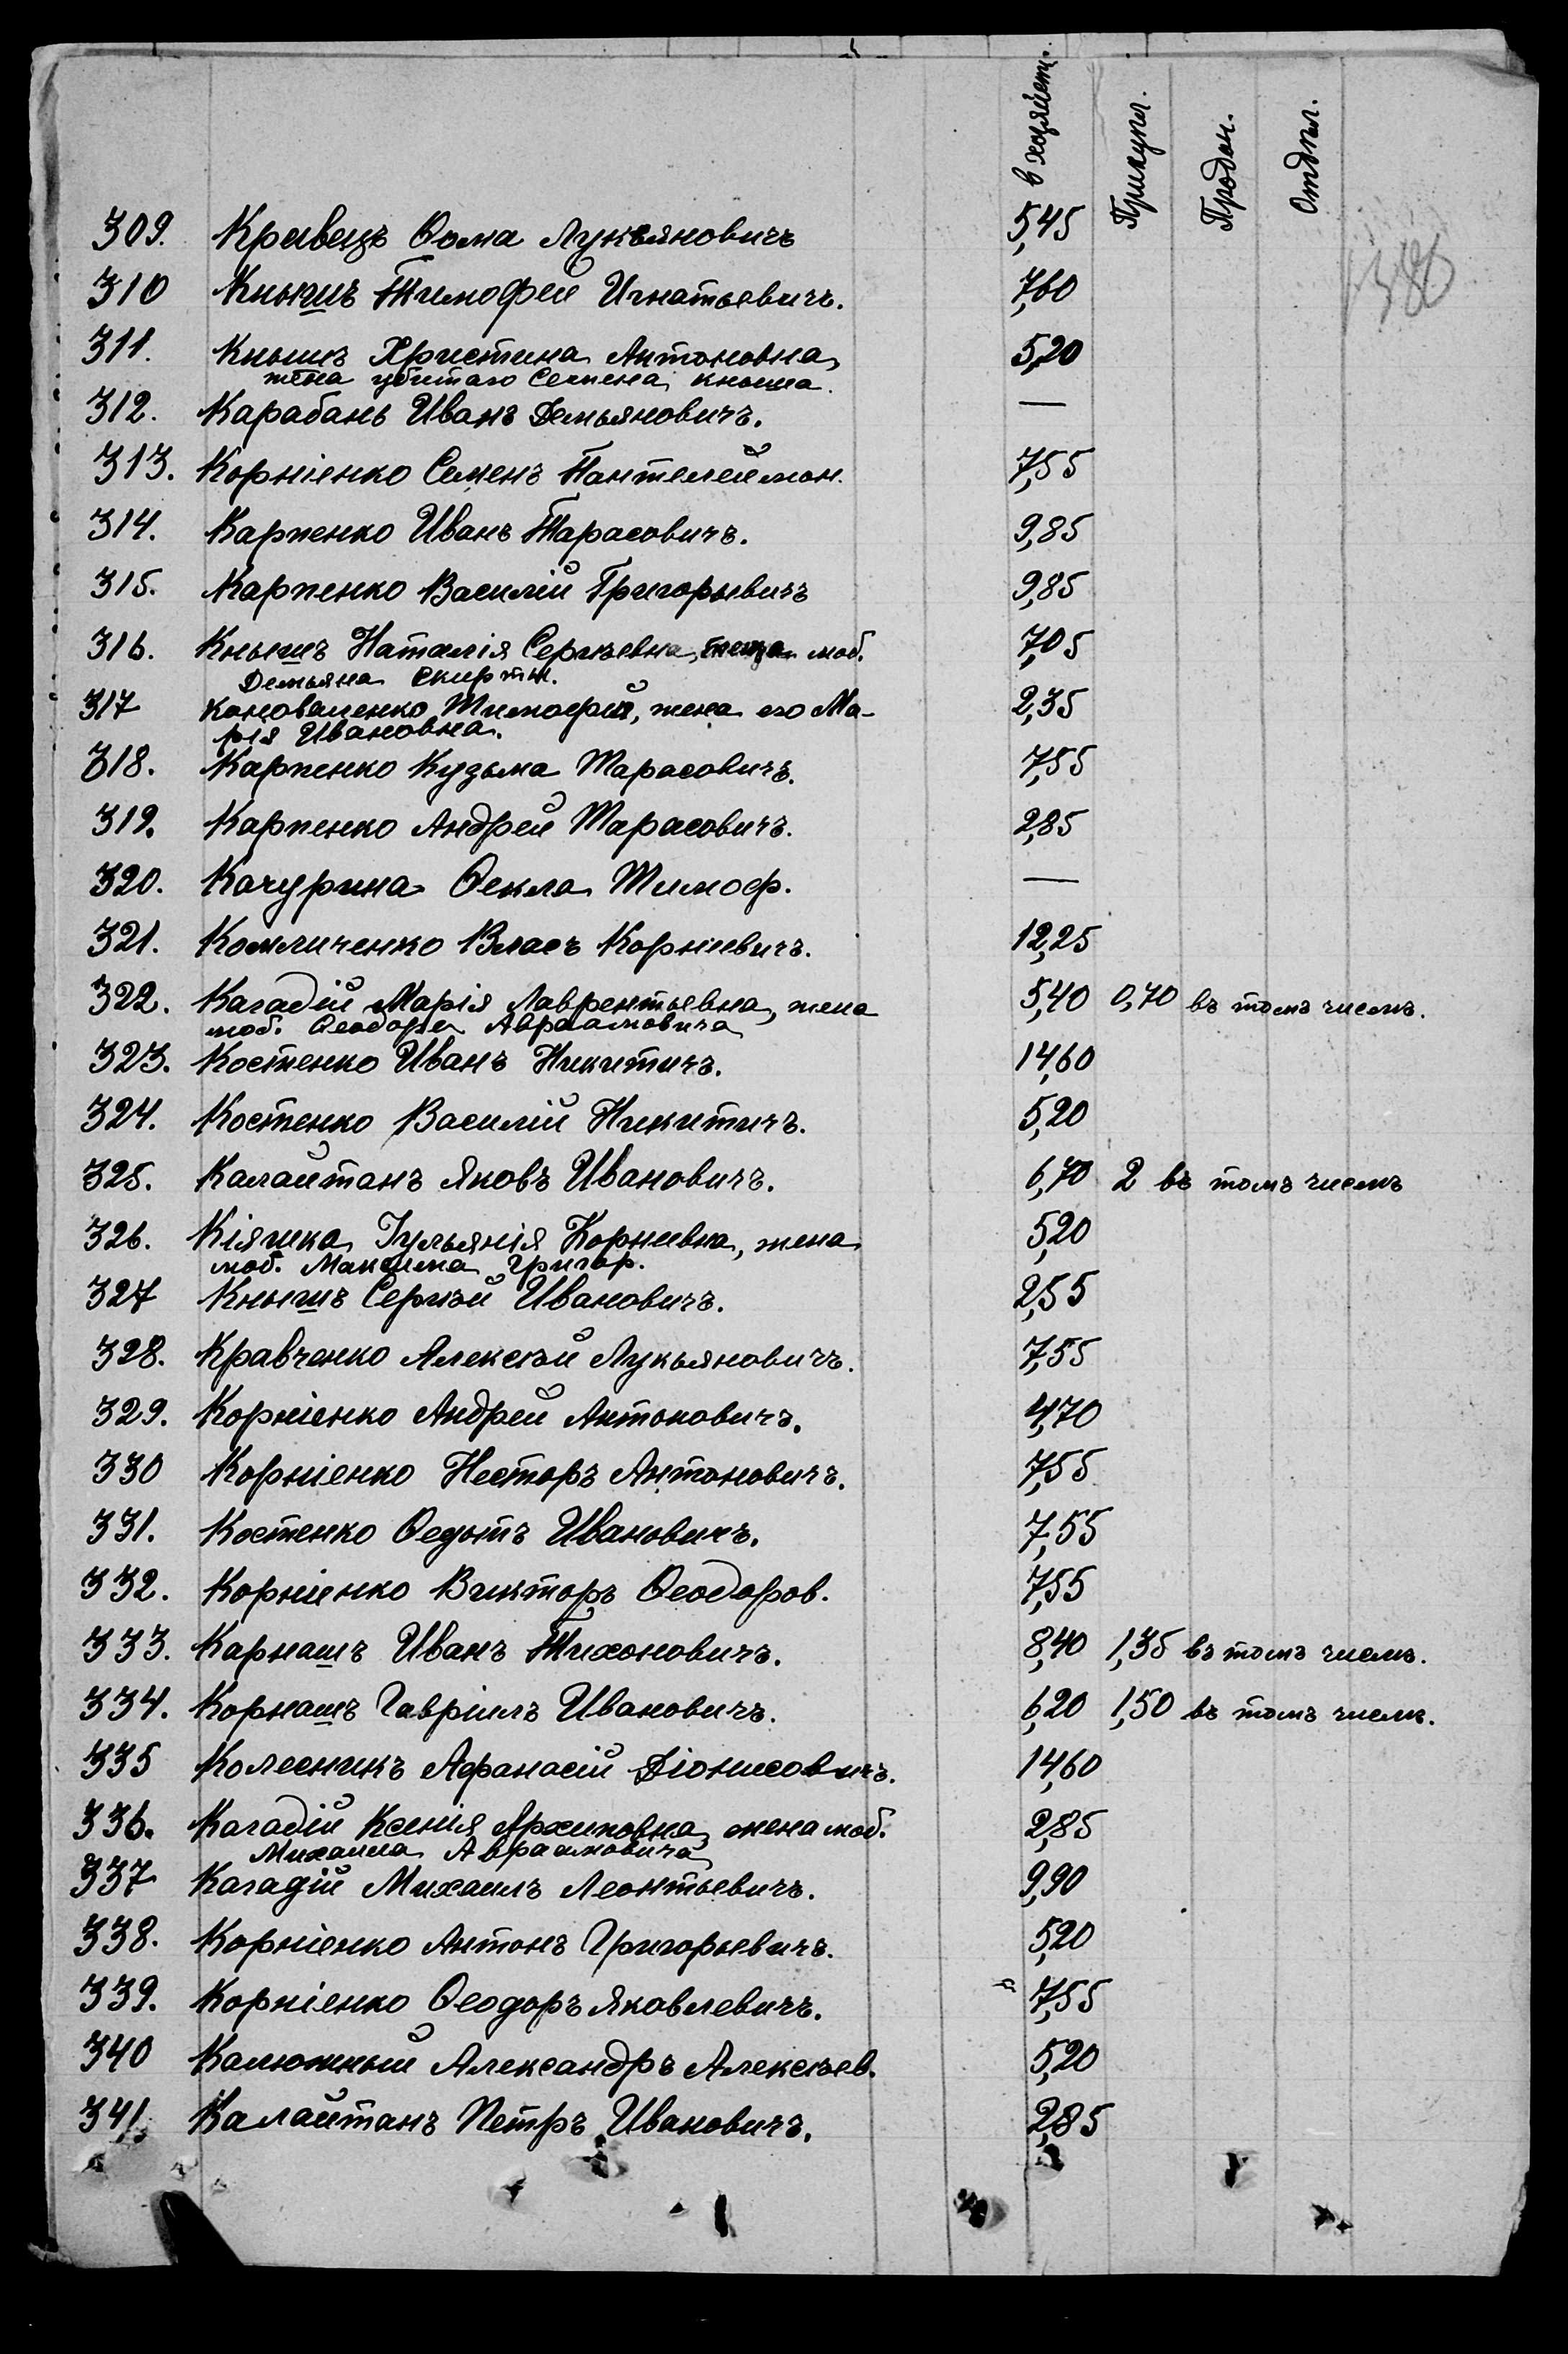 в хозяйст. Прикупл. Продан. Отдал.
309. Кравецъ Ѳома Лукьяновичъ 5,45
310 Кнышъ Тимофей Игнатьевичъ. 7,60
311. Кнышъ Христина Антоновна, 5,20
жена убитаго Семена Кныша.
312. Карабань Иванъ Демьяновичъ. —
313. Корніенко Семенъ Пантелеймон. 7,55
314. Карпенко Иванъ Тарасовичъ. 9,85
315. Карпенко Василій Григорьевичъ 9,85
316. Кнышъ Наталія Сергѣевна, теща моб. 7,05
Демьяна Скирты.
317 Коноваленко Тимофей, жена его Ма- 2,35
рія Ивановна.
318. Карпенко Кузьма Тарасовичъ. 7,55
319. Карпенко Андрей Тарасовичъ. 2,85
320. Качурина Ѳекла Тимоф. —
321. Комличенко Власъ Корніевичъ. 12,25
322. Кагадій Марія Лаврентьевна, жена 5,40 0,70 въ томъ числѣ.
моб. Ѳеодора Авраамовича
323. Костенко Иванъ Никитичъ. 14,60
324. Костенко Василій Никитичъ. 5,20
325. Калайтанъ Яковъ Ивановичъ. 6,70 2 въ томъ числѣ
326. Кіяшка Іульянія Корнеевна, жена 5,20
моб. Максима Григор.
327 Кнышъ Сергѣй Ивановичъ. 2,55
328. Кравченко Алексѣй Лукьяновичъ. 7,55
329. Корніенко Андрей Антоновичъ. 4,70
330 Корніенко Несторъ Антоновичъ. 7,55
331. Костенко Ѳедотъ Ивановичъ. 7,55
332. Корніенко Викторъ Ѳеодоров. 7,55
333. Карнашъ Иванъ Тихоновичъ. 8,40 1,35 въ томъ числѣ.
334. Корнашъ Гавріилъ Ивановичъ. 6,20 1,50 въ томъ числѣ.
335 Колесникъ Афанасій Діонисовичъ. 14,60
336. Кагадій Ксенія Архиповна, жена моб. 2,85
Михаила Авраамовича
337 Кагадій Михаилъ Леонтьевичъ. 9,90
338. Корніенко Антонъ Григорьевичъ. 5,20
339. Корніенко Ѳеодоръ Яковлевичъ. 7,55
340 Калюжный Александръ Алексѣев. 5,20
341. Калайтанъ Петръ Ивановичъ. 2,85